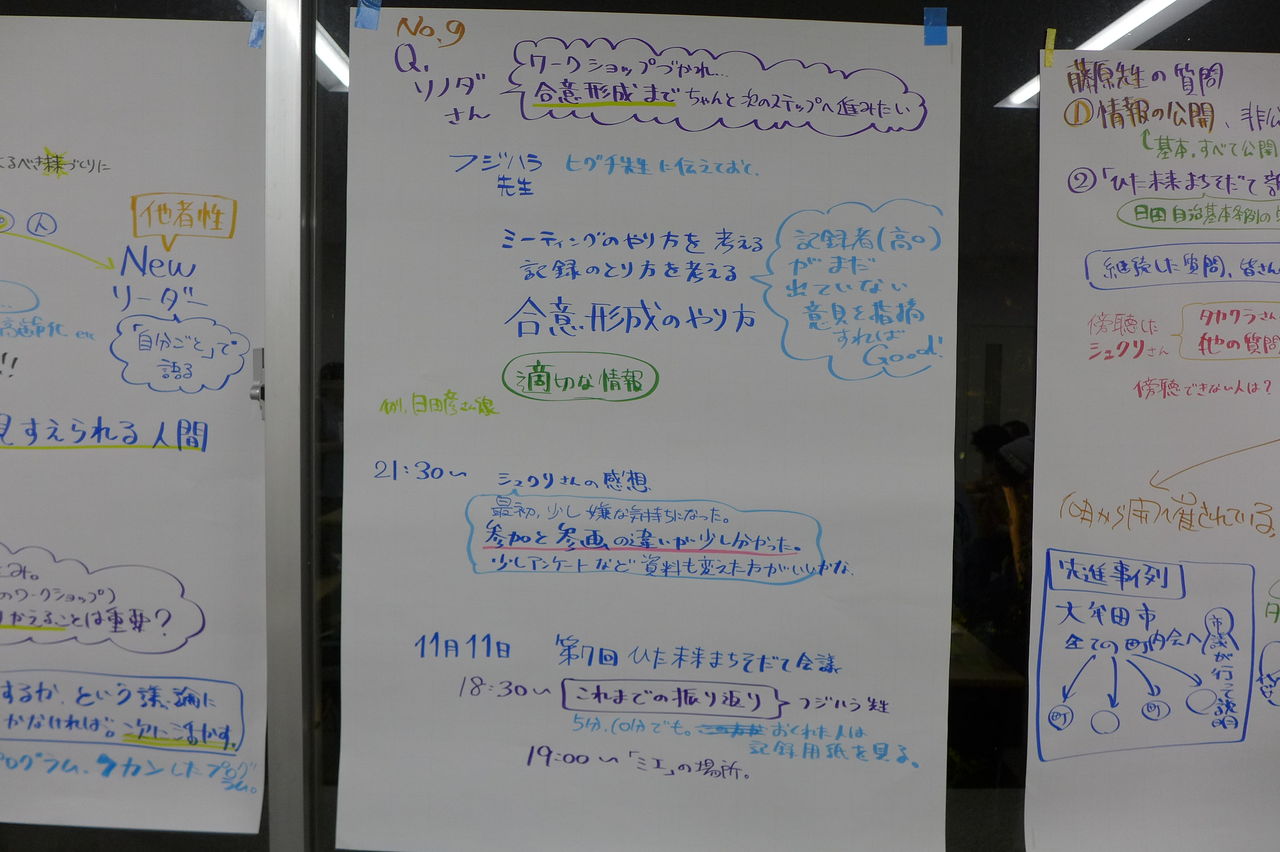 るべき未来づくりに
人
他者性
New
リーダー
「自分ごと」で
語る
etc
!!
見すえられる人間
のワークショップ)
りかえることは重要?
するか、という議論に
かなければ。次に活かす。
プログラム、タカンしたプログ
ラム。
No.9
Q.
ソノダ
さん
ワークショップづかれ...
合意形成まで ちゃんと次のステップへ進みたい
フジハラ
先生
ヒグチ先生に伝えておく、
ミーティングのやり方を考える
記録のとり方を考える
合意形成のやり方
記録者(高○)
がまだ
出ていない
意見を指摘
すれば
Good!
適切な情報
例、日田彦さん線
21:30〜
シュクリさんの感想
最初、少し嫌な気持ちになった。
参加と参画の違いが少し分かった。
少しアンケートなど資料も変えた方がいいかな、
11月11日 第7回 ひた未来まちそだて会議
18:30〜 これまでの振り返り フジハラ先生
5分、10分でも。 おくれた人は
記録用紙を見る。
19:00〜「ミエ」の場所。
藤原先生の質問
①情報の公開、非公
基本、すべて公開
②「ひた未来まちそだて
日田自治基本条例の
継続した質問、皆さん
傍聴した
シュクリさん
タカクラさん
他の質問
傍聴できない人は?
から開催されている。
先進事例
大牟田市
全ての町内会へ
市議が行って説明
町
町